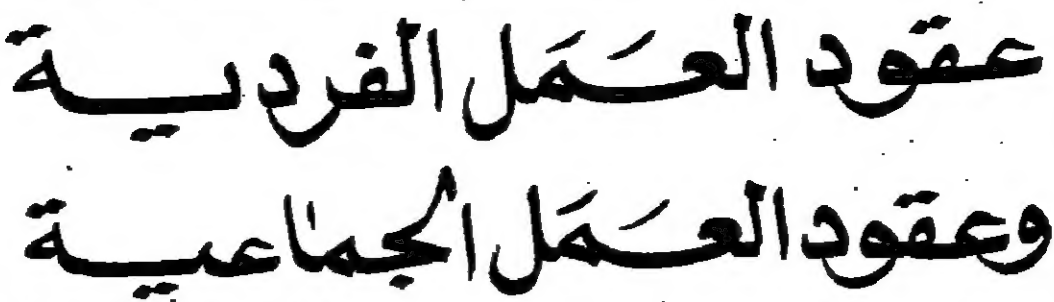 عقود العَمَل الفردية
وعقود العَمَل الجماعية